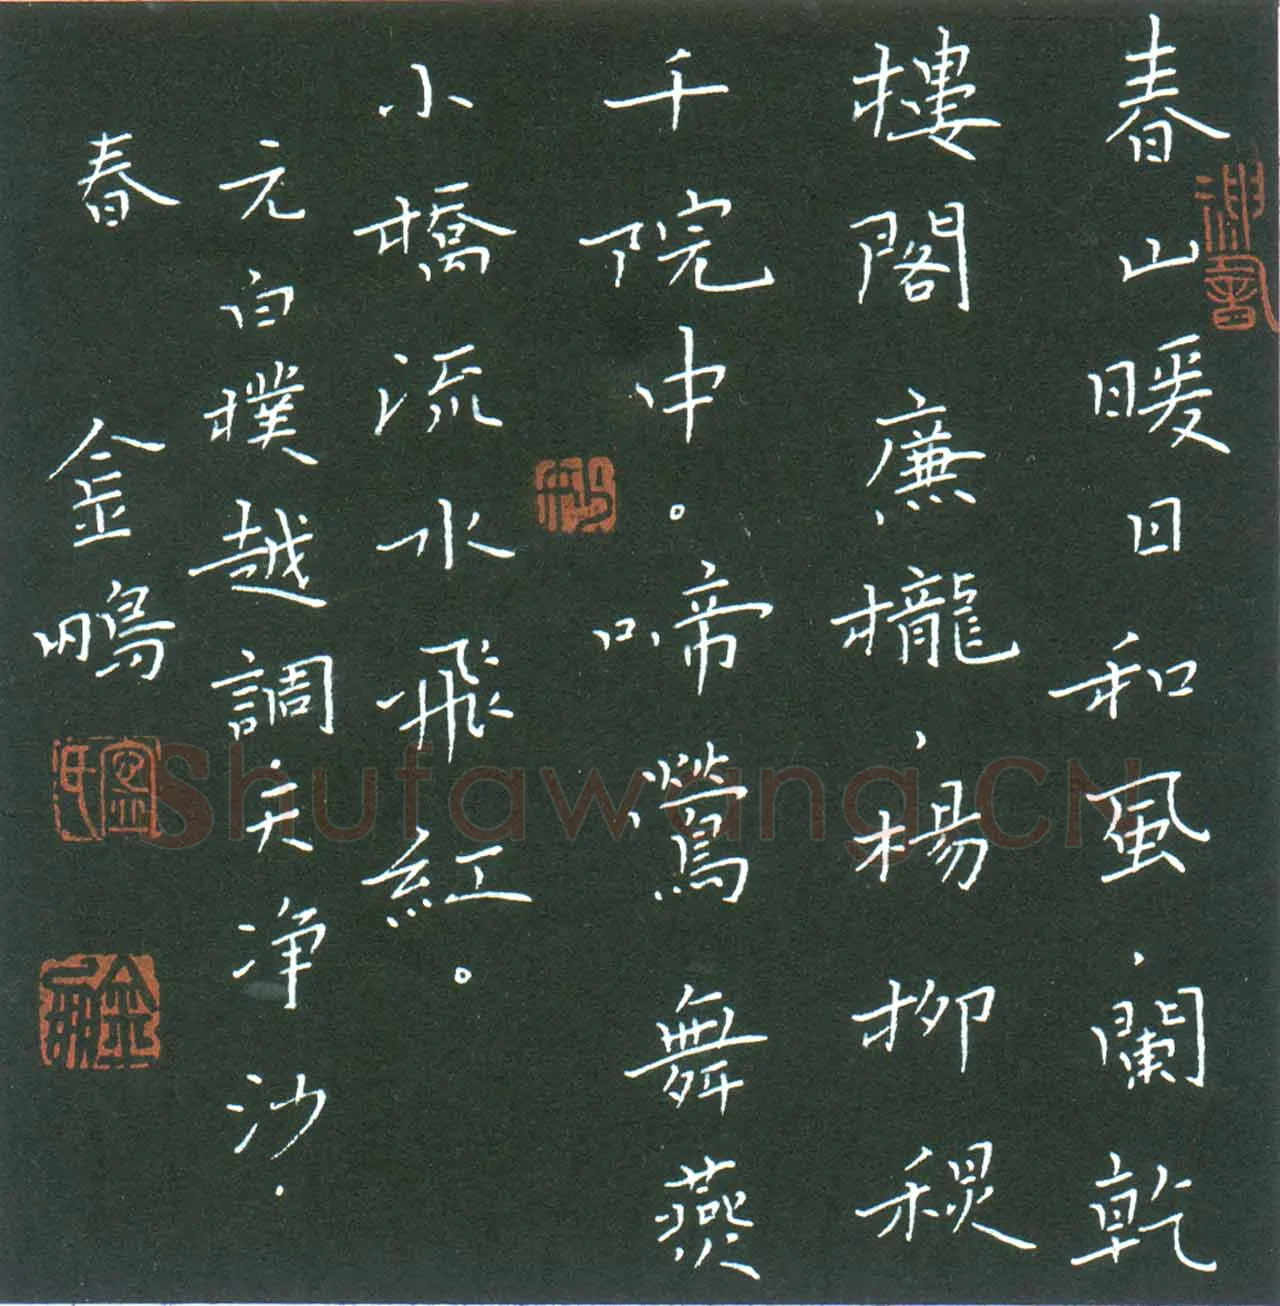 春山暖日和風、闌乾
樓閣廉櫳、楊柳
千院中。啼鶯舞燕
小橋流水飛紅。
元白樸越調·天净沙·
春 金鵬
Shufawang.CN